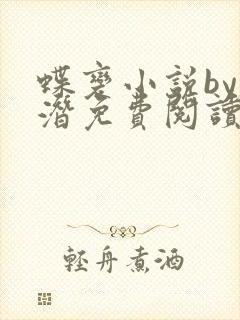 蝶裘小說by
潛免費閱讀
輕舟煮酒